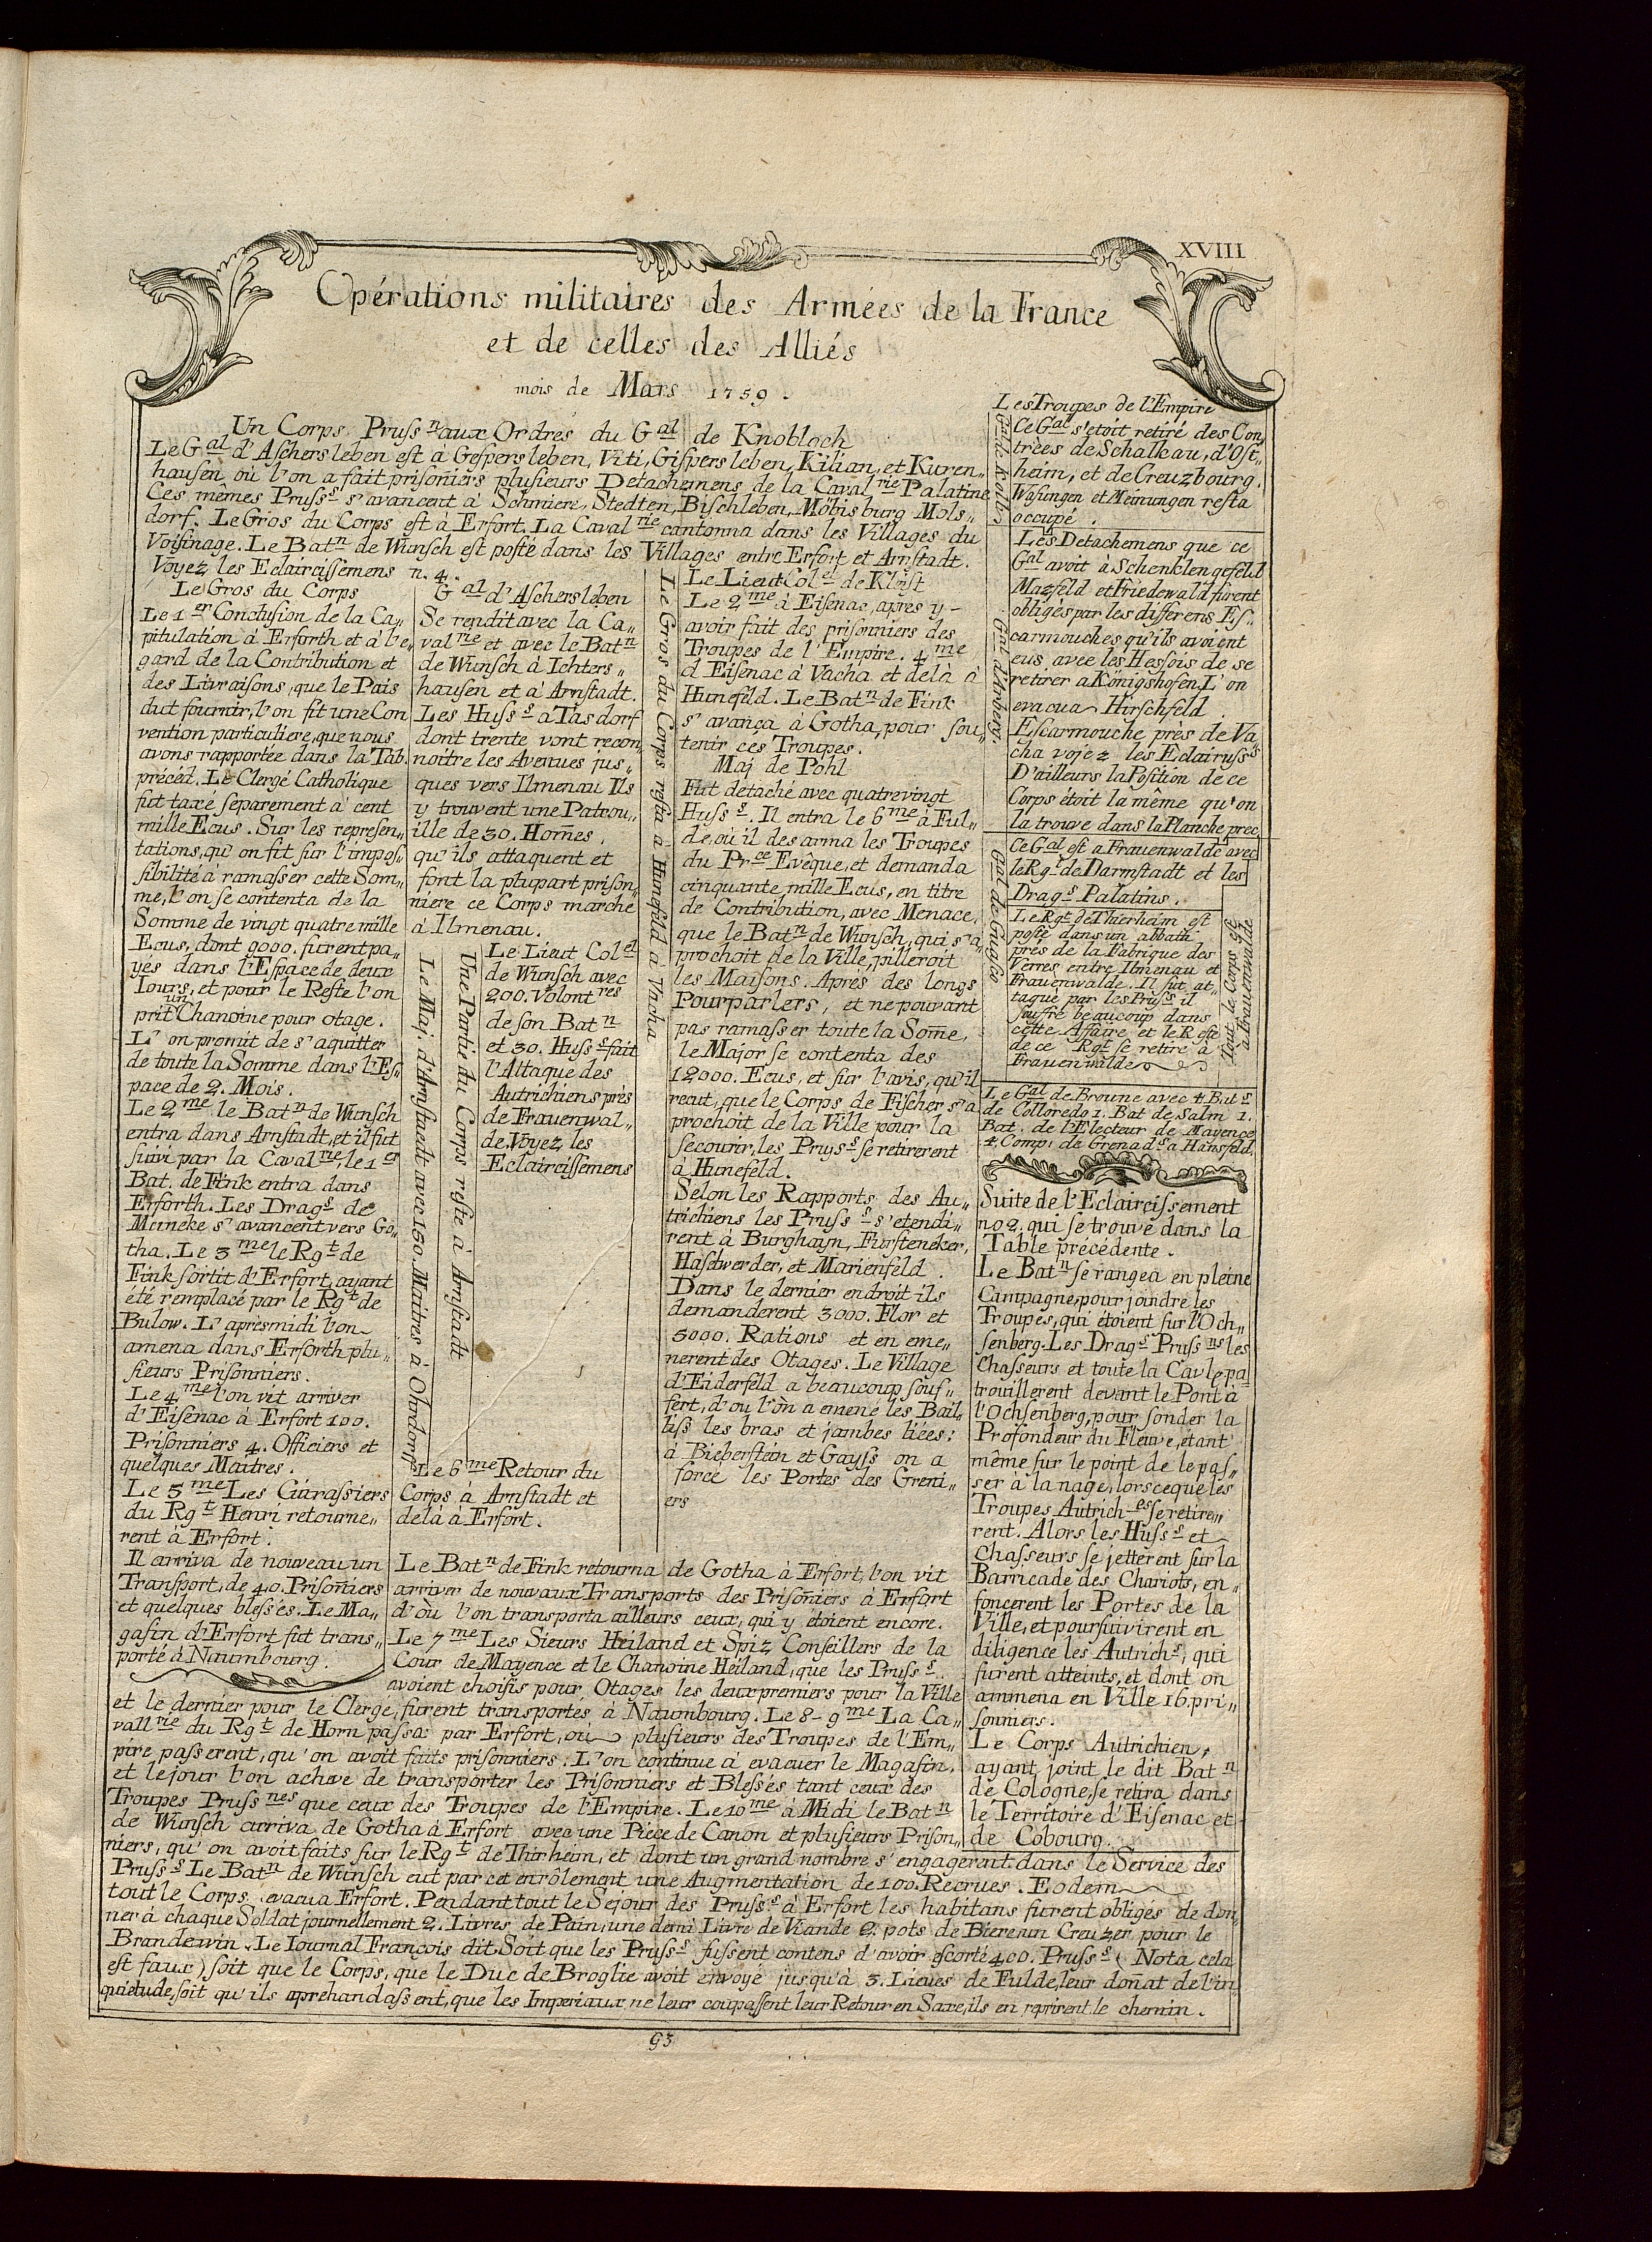 XVIII
Opérations militaires des Armées de la France
et de celles des Alliés
mois de Mars 1759.
Un Corps Pruſsn aux Ordres du Gal de Knobloch
Le Gal d'Aschersleben est à Gespersleben, Viti, Gispersleben, Kilian, et Kuren„
hausen, où l'on a fait prisoñiers plusieurs Detachemens de la Cavalrie Palatine
Ces mêmes Pruſss s'avancent à Schmiere, Stedten, Bischleben, Möbisburg Mols„
dorf. Le Gros du Corps est à Erfort. La Cavalrie cantonna dans les Villages du
Voisinage. Le Batn de Wunsch est posté dans les Villages entre Erfort et Arnstadt.
Voyez les Eclaircissemens n. 4.
Le Gros du Corps
Le 1er Conclusion de la Ca„
pitulation à Erforth et à l'e„
gard de la Contribution et
des Livraisons, que le Païs
dut fournir, l'on fit une Con
vention particuliere, que nous
avons rapportée dans la Tab.
précéd. Le Clergé Catholique
fut taxé separement à cent
mille Ecus. Sur les represen„
tations, qu'on fit sur l'impos„
sibilité à ramasser cette Som„
me, l'on se contenta de la
Somme de vingt quatre mille
Ecus, dont 9000. furent pa„
yés dans l'Espace de deux
Iours, et pour le Reste l'on
prit un Chanoine pour otage.
L'on promit de s'aquitter
de toute la Somme dans l'Es„
pace de 2. Mois.
Le 2me le Batn de Wunsch
entra dans Arnstadt, et il fut
suivi par la Cavalrie, le 1er
Bat. de Fink entra dans
Erforth. Les Drags de
Meineke s'avancent vers Go„
tha. Le 3me le Rgt de
Fink sortit d'Erfort, ayant
été remplacé par le Rgt de
Bulow. L'aprèsmidi l'on
amena dans Erforth plu„
sieurs Prisonniers.
Le 4me l'on vit arriver
d'Eisenac à Erfort 100.
Prisonniers 4. Officiers et
quelques Maitres.
Le 5me Les Cuirassiers
du Rgt Henri retourne„
rent à Erfort.
Il arriva de nouveau un
Transport, de 40. Prisoñiers
et quelques blessés. Le Ma„
gasin d'Erfort fut trans„
porté à Naumbourg.
Gal d'Aschersleben
Se rendit avec la Ca„
valrie et avec le Batn
de Wunsch à Ichters„
hausen et à Arnstadt.
Les Huſss a Tasdorf
dont trente vont recon„
noitre les Avenues jus„
ques vers Ilmenau Ils
y trouvent une Patrou„
ille de 30. Hom̃es,
qu'ils attaquent et
font la plupart prison„
niere ce Corps marche
à Ilmenau.
Le Maj. d'Arnstaedt avec 150. Maitres à Ohrdorff
Une Partie du Corps reste à Arnstadt
Le Lieut Colel
de Wunsch avec
200. Volontres
de son Batn
et 30. Huſss fait
l'Attaque des
Autrichiens près
de Frauenwal„
de. Voyez les
Eclaircissemens
Le 6me Retour du
Corps à Arnstadt et
delà à Erfort.
Le Gros du Corps resta à Hunefeld à Vacha
Le Lieut Colel de Kleist
Le 2me à Eisenac, apres y-
avoir fait des prisonniers des
Troupes de l'Empire. 4me
d Eisenac à Vacha et delà à
Hunefeld. Le Batn de Fink
s'avança à Gotha, pour sou„
tenir ces Troupes.
Maj de Pohl
Fut détaché avec quatrevingt
Huſss. Il entra le 6me à Ful„
de, où il desarma les Troupes
du Prce Evêque, et demanda
cinquante mille Ecus, en titre
de Contribution, avec Menace,
que le Batn de Wunsch, qui s'a„
prochoit de la Ville, pilleroit
les Maisons. Après des longs
Pourparlers, et ne pouvant
pas ramasser toute la Som̃e,
le Major se contenta des
12000. Ecus, et sur l'avis, qu'il
recut, que le Corps de Fischer s'a
prochoit de la Ville pour la
secourir, les Pruſss se retirerent
à Hunefeld.
Selon les Rapports des Au„
trichiens les Pruſss s'etendi„
rent à Burghayn, Fursteneker,
Haselwerder, et Marienfeld.
Dans le dernier endroit ils
demanderent 3000. Flor et
5000. Rations et en eme„
nerent des Otages. Le Village
d'Eiderfeld a beaucoup souf„
fert, d'ou l'on a emené les Bail„
lifs les bras et jambes liées:
à Bieberstein et Gayſs on a
force les Portes des Greni„
ers
Le Batn de Fink retourna de Gotha à Erfort, l'on vit
arriver de nouvaux Transports des Prisoñiers à Erfort
d'où l'on transporta ailleurs ceux, qui y étoient encore.
Le 7me Les Sieurs Heiland et Spiz Conseillers de la
Cour de Mayence et le Chanoine Heiland, que les Pruſss
avoient choisis pour Otages les deux premiers pour la Ville
et le dernier pour le Clergé, furent transportés à Naumbourg. Le 8-9me La Ca„
vallrie du Rgt de Horn passa par Erfort, où plusieurs des Troupes de l'Em„
pire passerent, qu'on avoit faits prisonniers. L'on continue à evacuer le Magasin,
et le jour l'on acheve de transporter les Prisonniers et Blessés tant ceux des
Troupes Pruſsnes que ceux des Troupes de l'Empire. Le 10me à Midi le Batn
de Wunsch arriva de Gotha à Erfort avec une Piece de Canon et plusieurs Prison„
niers, qu'on avoit faits sur le Rgt de Thirheim, et dont un grand nombre s'engagerent dans le Service des
Pruſss Le Batn de Wunsch eut par cet enrôlement une Augmentation de 100. Recrues. Eodem
tout le Corps evacua Erfort. Pendant tout le Sejour des Pruſss à Erfort les habitans furent obligés de don„
ner à chaque Soldat journellement 2. Livres de Pain, une demi Livre de Viande 2. pots de Biere un Creuzer pour le
Brandewin. Le Iournal François dit. Soit que les Pruſss fussent contens d'avoir escorté 400. Pruſss (Nota cela
est faux) soit que le Corps, que le Duc de Broglie avoit envoyé jusqu'à 3. Lieues de Fulde, leur doñat de l'in
quietude, soit qu'ils aprehandassent, que les Imperiaux ne leur coupassent leur Retour en Saxe, ils en reprirent le chemin.
Les Troupes de l'Empire
Gal de Kolb
Ce Gal s'etoit retiré des Con„
trées de Schalkau, d'Ost„
heim, et de Creuzbourg.
Wasungen et Meinungen resta
occupé.
Gal d'Arberg.
Les Detachemens que ce
Gal avoit à Schenklengesfeld
Mazfeld et Friedewald furent
obligés par les differens Es„
carmouches qu'ils avoient
eus avec les Hessois de se
retirer a Königshofen. L'on
evacua Hirschfeld.
Escarmouche près de Va„
cha vojez les Eclairusss
D'ailleurs la Position de ce
Corps étoit la même qu'on
la trouve dans la Planche prec.
Gal de Guasco
Ce Gal est a Frauenwalde avec
le Rgt de Darmstadt et les
Drags Palatins.
Le Rgt de Thierheim est
posté dans un abbath
prés de la Fabrique des
Verres entre Ilmenau et
Frauenwalde. Il fut at„
taqué par les Pruſss il
souffre beaucoup dans
cette Affaire et le Reste
de ce Rgt se retire à
Frauenwalde
Tout le Corps est
à Frauenwalde
Le Gal de Broune avec 4. Bats
de Colloredo 1. Bat de Salm 1.
Bat. de l'Electeur de Mayence
4. Comp: de Grenads a Hansfeld.
Suite de l'Eclaircissement
no 2. qui se trouve dans la
Table précédente.
Le Batn se rangea en pleine
Campagne, pour joindre les
Troupes, qui étoient sur l'Och„
senberg. Les Drags Pruſsns les
Chasseurs et toute la Cavle pa„
trouillerent devant le Pont à
l'Ochsenberg, pour sonder la
Profondeur du Fleuve, étant
même sur le point de le pas„
ser à la nage, lorsceque les
Troupes Autriches se retire„
rent. Alors les Huſss et
Chasseurs se jetterent sur la
Barricade des Chariots, en„
foncerent les Portes de la
Ville, et poursuivirent en
diligence les Autrichs, qui
furent atteints, et dont on
ammena en Ville 16. pri„
sonniers.
Le Corps Autrichien,
ayant joint le dit Batn
de Cologne, se retira dans
le Territoire d'Eisenac et
de Cobourg.
93